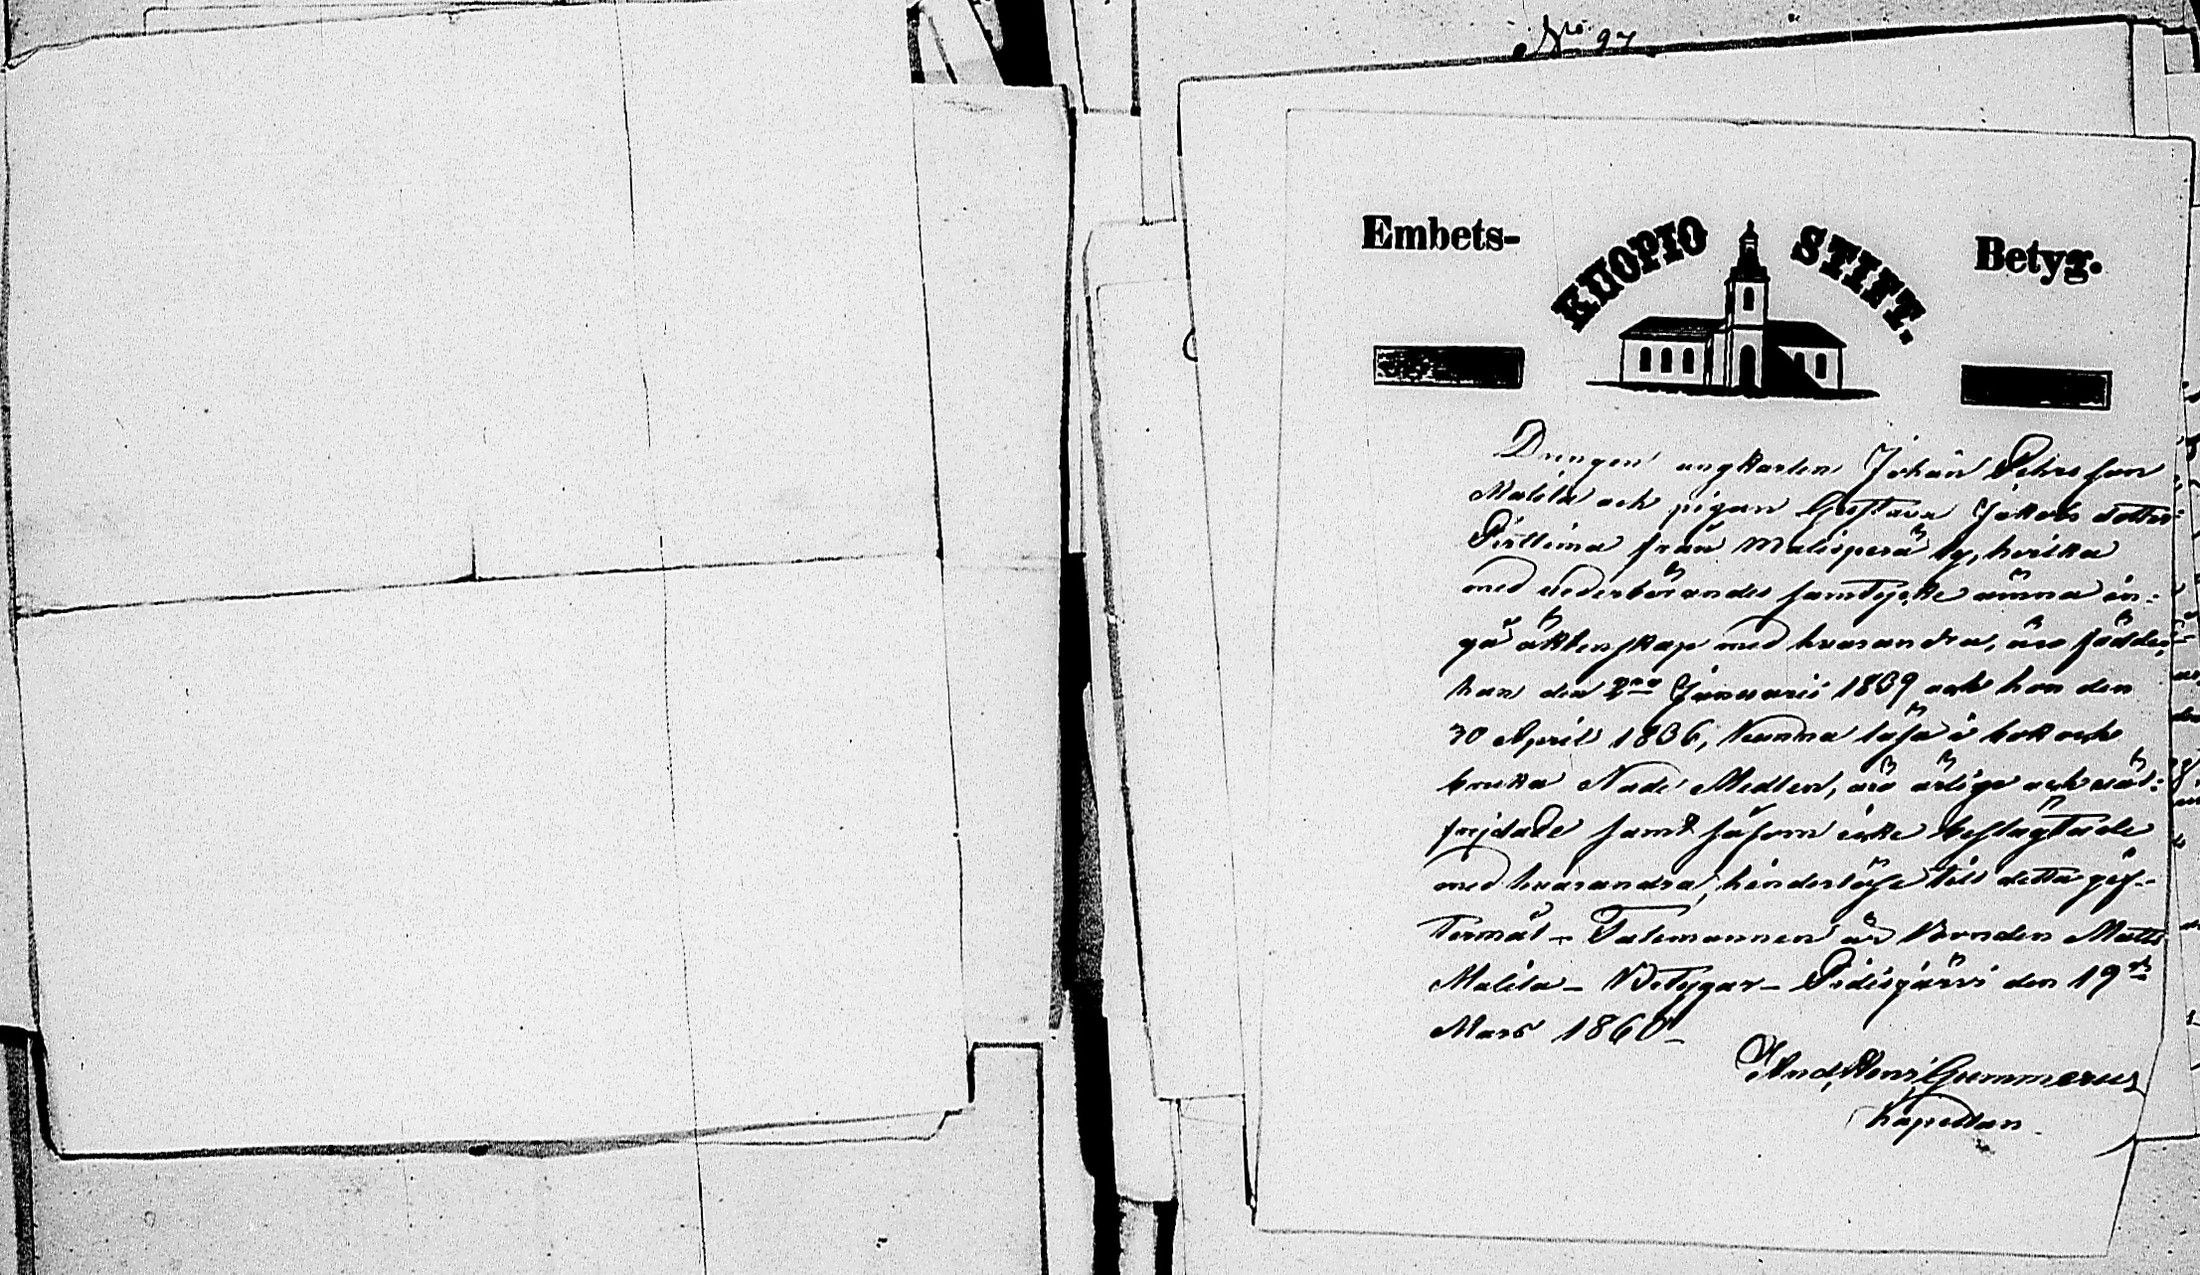 No 97
Embets- KUOPIO STIFT. Betyg.
Drengen ungkarlen Johan Pehrsson
Malila och pigan Gustava Jakobs dotter
Pirttima från Malisperä by, hvilka
med vederbörandes samtycke ämna in-
gå äktenskap med hvarandra, äro födde,
han den 2dra Januarii 1839 och hon den
30 April 1836, kunna läsa i bok och
bruka Nade Medlen, äro ärlige och väl-
frejdade samt såsom icke beslägtade
med hvarandra, hinderslöse till detta gif-
termål – Talemannen är Bonden Matts
Malila – Betygar – Pidisjärvi den 19de
Mars 1860 –
And. Henr. Gummerus
Kapellan